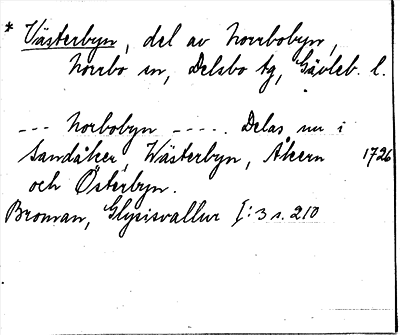 * Västerbyn, del av Norrbobyn,
Norrbo sn, Delsbo tg, Gävleb. l.
--- Norbobyn -----. Delas nu i
Sandåker, Wästerbyn, Åkern 1726
och Österbyn.
Broman, Glysisvallur I:3 s. 210